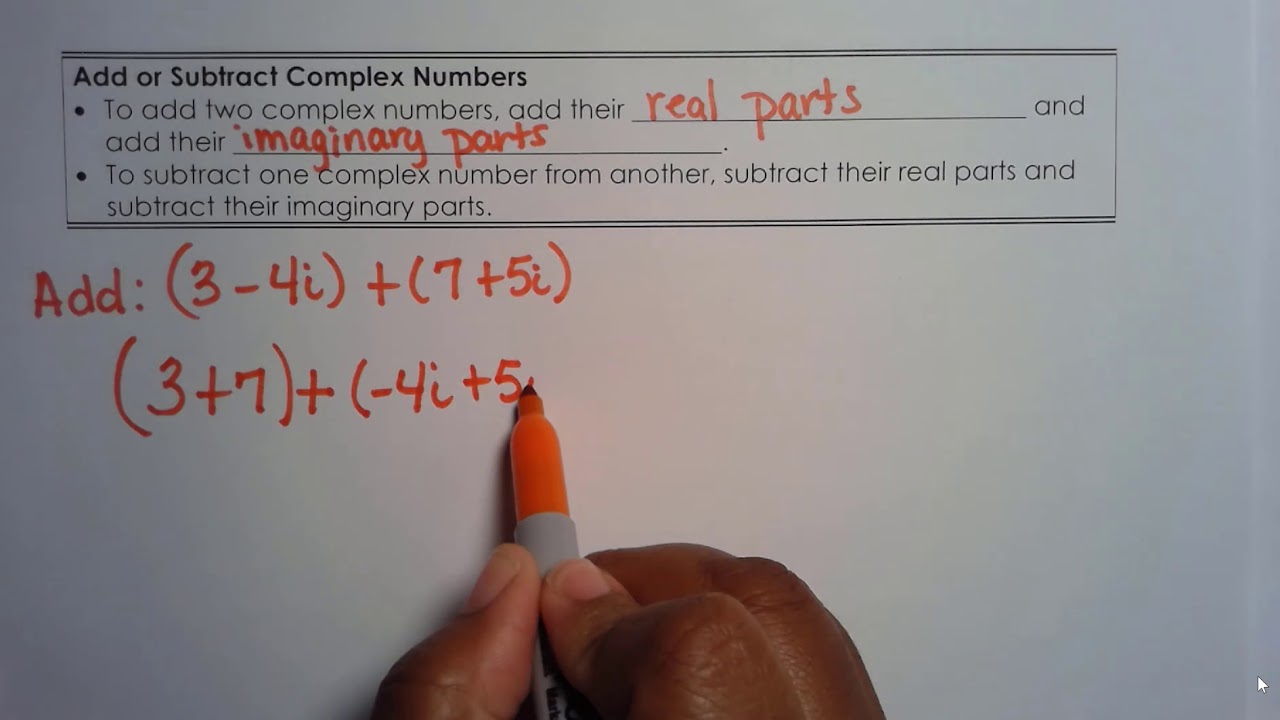 Add or Subtract Complex Numbers
• To add two complex numbers, add their real parts and
add their imaginary parts.
• To subtract one complex number from another, subtract their real parts and
subtract their imaginary parts.
Add: (3 - 4i) + (7 + 5i)
(3 + 7) + (-4i + 5i